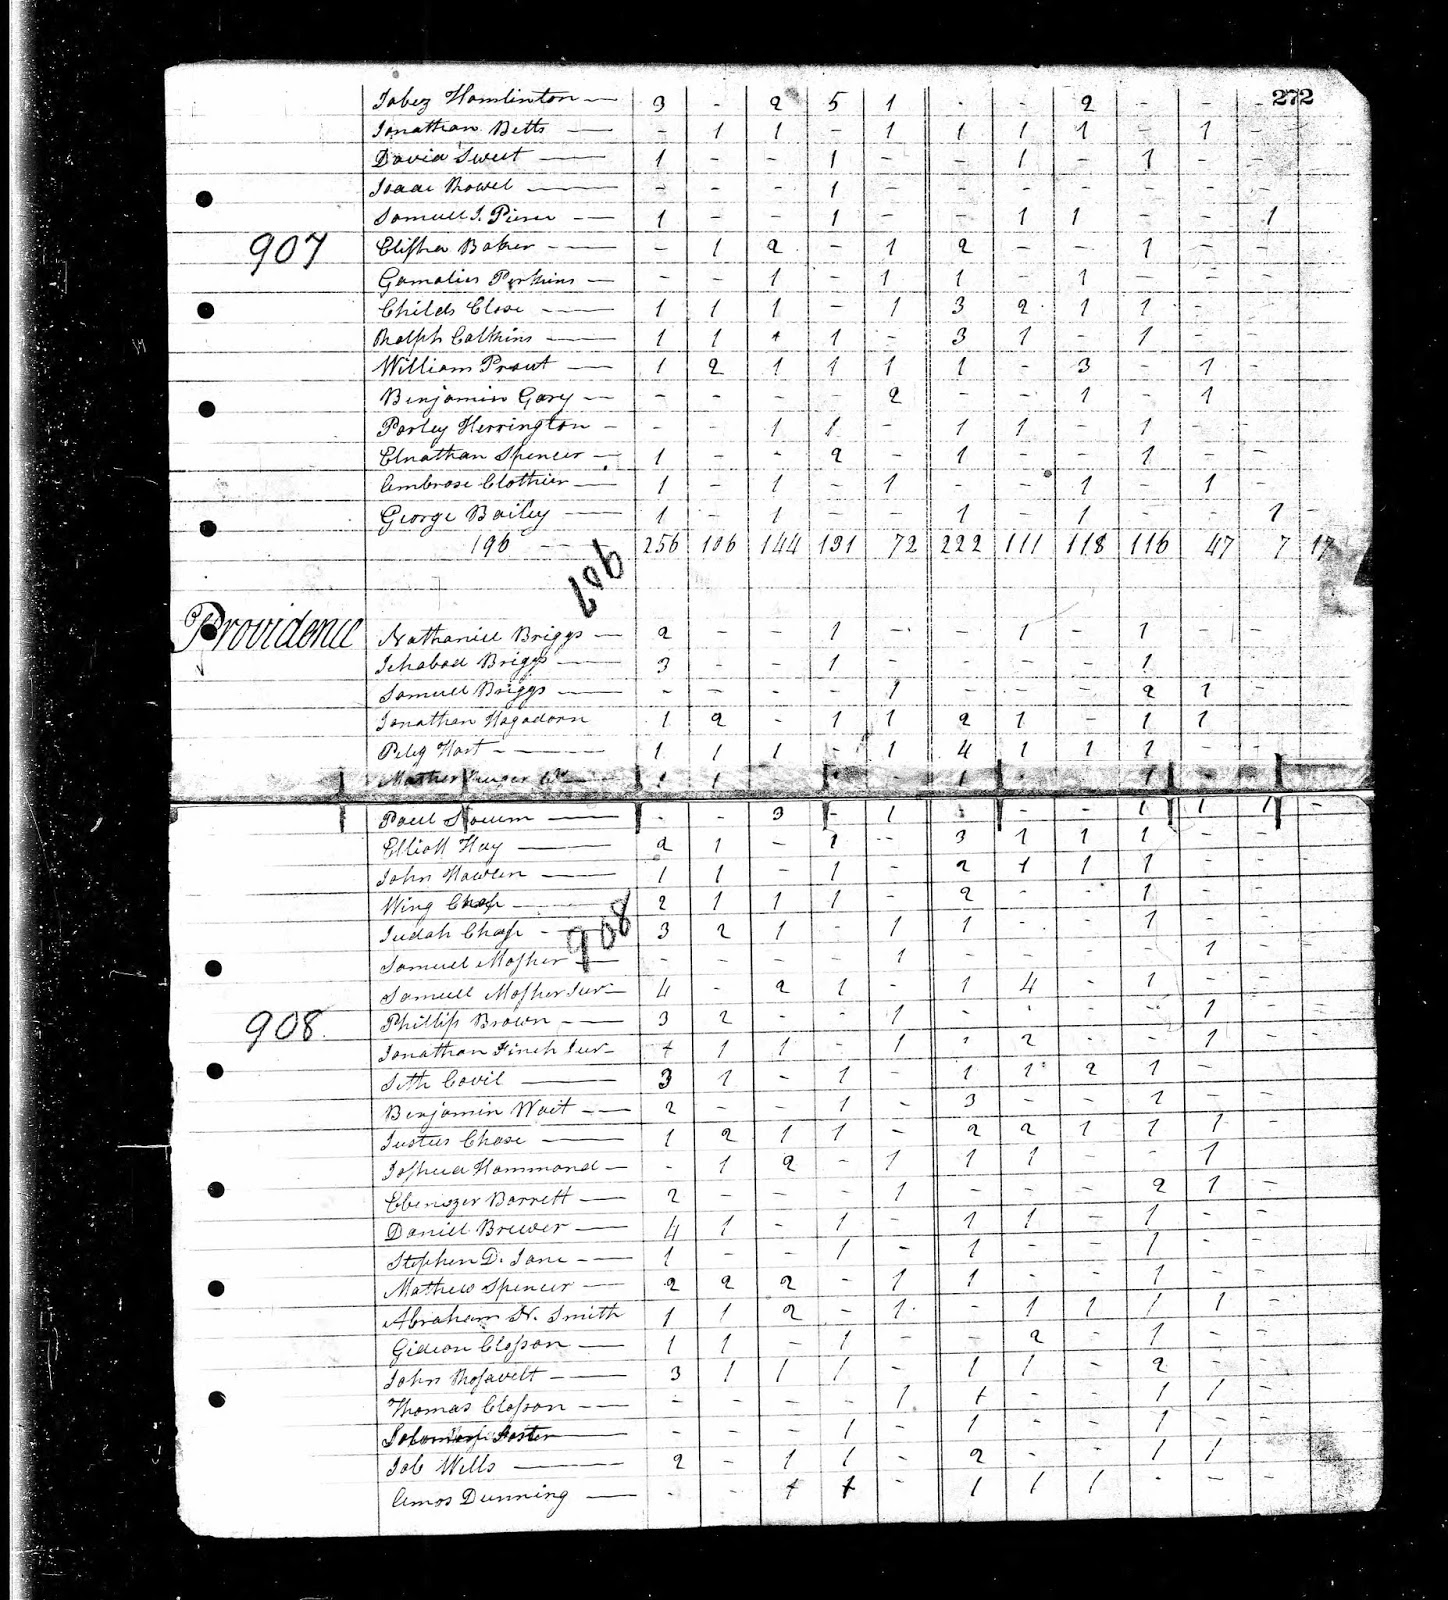 272
Jabez Hamlinton — 3 - 2 5 1 - - 2 - - -
Jonathan Betts — - 1 1 - 1 1 1 1 - 1 -
David Sweet — 1 - - 1 - - 1 - 1 - -
Isaac Rowel — - - - 1 - - - - - - -
Samuel J. Pierce — 1 - - 1 - - 1 1 - - 1
907 Elisha Baker — - 1 2 - 1 2 - - 1 - -
Gamaliel Perkins — - - 1 - 1 1 - 1 - - -
Childs Close — 1 1 1 - 1 3 2 1 1 - -
Ralph Calkins — 1 1 1 - 3 1 - 1 - -
William Prout — 1 2 1 1 1 1 - 3 - 1 -
Benjamin Gary — - - - - 2 - - 1 - 1
Parley Herrington - - - 1 1 - 1 1 - 1 - -
Elnathan Spencer - 1 - - 2 - 1 - - 1 - -
Ambrose Clothier — 1 - 1 - 1 - - 1 - 1 -
George Bailey — 1 - 1 - - 1 - 1 - - 1 -
196 256 106 144 131 72 222 111 118 116 47 7 17
907
Providence Nathaniel Briggs — 2 - - 1 - - 1 - 1 - -
Ichabod Briggs — 3 - - 1 - - - - 1
Samuel Briggs — - - - - 1 - - - 2 1 -
Jonathan Hagadorn 1 2 - 1 1 2 1 - 1 1
Peleg Hart - 1 1 1 - 1 4 1 1 1 - -
Paul — - - 3 - 1 - - 1 1 1 -
Elliott Hay — 2 1 - 1 - 3 1 1 1 - -
John — 1 1 - 1 - 2 1 1 1 - -
Wing Chase - 2 1 1 1 - 2 - - 1 - -
Judah Chase - 3 2 1 - 1 1 - - 1 - -
908
Samuel Mosher — - - - - 1 - - - - 1 -
Samuel Mosher Jur — 4 - 2 1 - 1 4 - 1 - -
908. Phillip Brown — 3 2 - - 1 - - - - 1
Jonathan Finch Jur — 1 1 - 1 1 2 - - 1 -
Seth Covil — 3 1 - 1 - 1 1 2 1 -
Benjamin Wait — 2 - - 1 - 3 - - 1 - -
Justus Chase — 1 2 1 1 - 2 2 1 1 1 -
Joshua Hammond — - 1 2 - 1 1 1 - - 1
Ebenezer Barrett — 2 - - - 1 - - - 2 1 -
Daniel Brewer — 4 1 - 1 - 1 1 - 1 - -
Stephen D. — 1 - - 1 - 1 - - 1 - -
Mathew Spencer — 2 2 2 - 1 1 - - 1 -
Abraham N. Smith 1 1 2 - 1 - 1 1 1 1 -
Gideon Closson — 1 1 - 1 - - 2 - 1 - -
John Rosavelt — 3 1 1 1 - 1 1 - 2 - -
Thomas Closson — - - - - 1 - - 1 1 -
Foster - - - 1 - 1 - - 1 - -
Job Wells — 2 - 1 1 - 2 - - 1 1
Amos Dunning — - - - 1 1 1 - - -